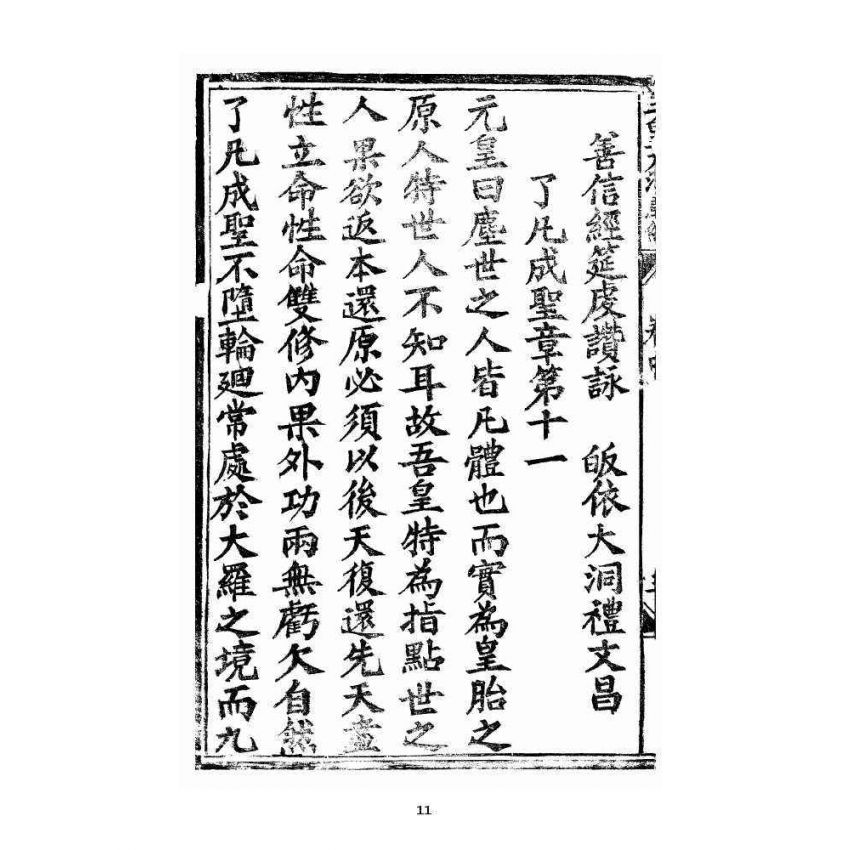 善信經筵虔讚詠　皈依大洞禮文昌
了凡成聖章第十一
元皇曰塵世之人皆凡體也而實為皇胎之
原人特世人不知耳故吾皇特為指點世之
人果欲返本還原必須以後天復還先天盡
性立命性命雙修內果外功兩無虧欠自然
了凡成聖不墮輪迴常處於大羅之境而九
11